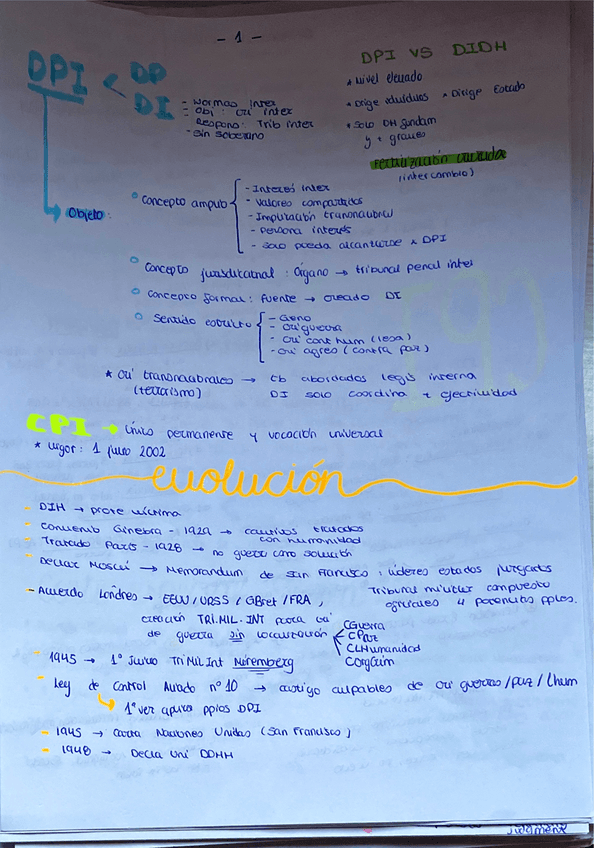 - 1 -
DPI < DP
DI
- Normas inter
- Obj: crí inter
Respons: Trib inter
- Sin soberano
DPI VS DIDH
* Nivel elevado
* Dirige individuos * Dirige Estado
* Solo DH fundam
y + graves
Fertilización cruzada
(intercambio)
Objeto:
Concepto amplio
- Interés inter
- Valores compartidos
- Imputación transnacional
- Persona interés
- Solo pueda alcanzarse x DPI
Concepto jurisdiccional: Órgano → tribunal penal inter
Concepto formal: Fuente → creado DI
Sentido estricto
- Geno
- Crí guerra
- Crí cont hum (lesa)
- Crí agres (contra paz)
* Crí transnacionales → tb abordados legis interna
(terrorismo) DI solo coordina + efectividad
CPI → Único permanente y vocación universal
* Vigor: 1 julio 2002
evolución
- DIH → prote víctima
- Convenio Ginebra - 1929 → cautivos tratados
con humanidad
- Tratado París - 1928 → no guerra como solución
- Declar Moscú → Memorandum de San Francisco: líderes estados juzgados
Tribunal militar compuesto
oficiales 4 potencias pples.
- Acuerdo Londres → EEUU / URSS / GBret / FRA,
creación TRI.MIL.INT para crí
de guerra sin localización
CGuerra
CPaz
CLHumanidad
COrgCrim
- 1945 → 1º Juicio Tri Mil Int Núremberg
- Ley de Control Aliado nº 10 → castigo culpables de crí guerras/paz/lhum
1ª vez aplica ppios DPI
- 1945 → Carta Naciones Unidas (San Francisco)
- 1948 → Decla Uni DDHH